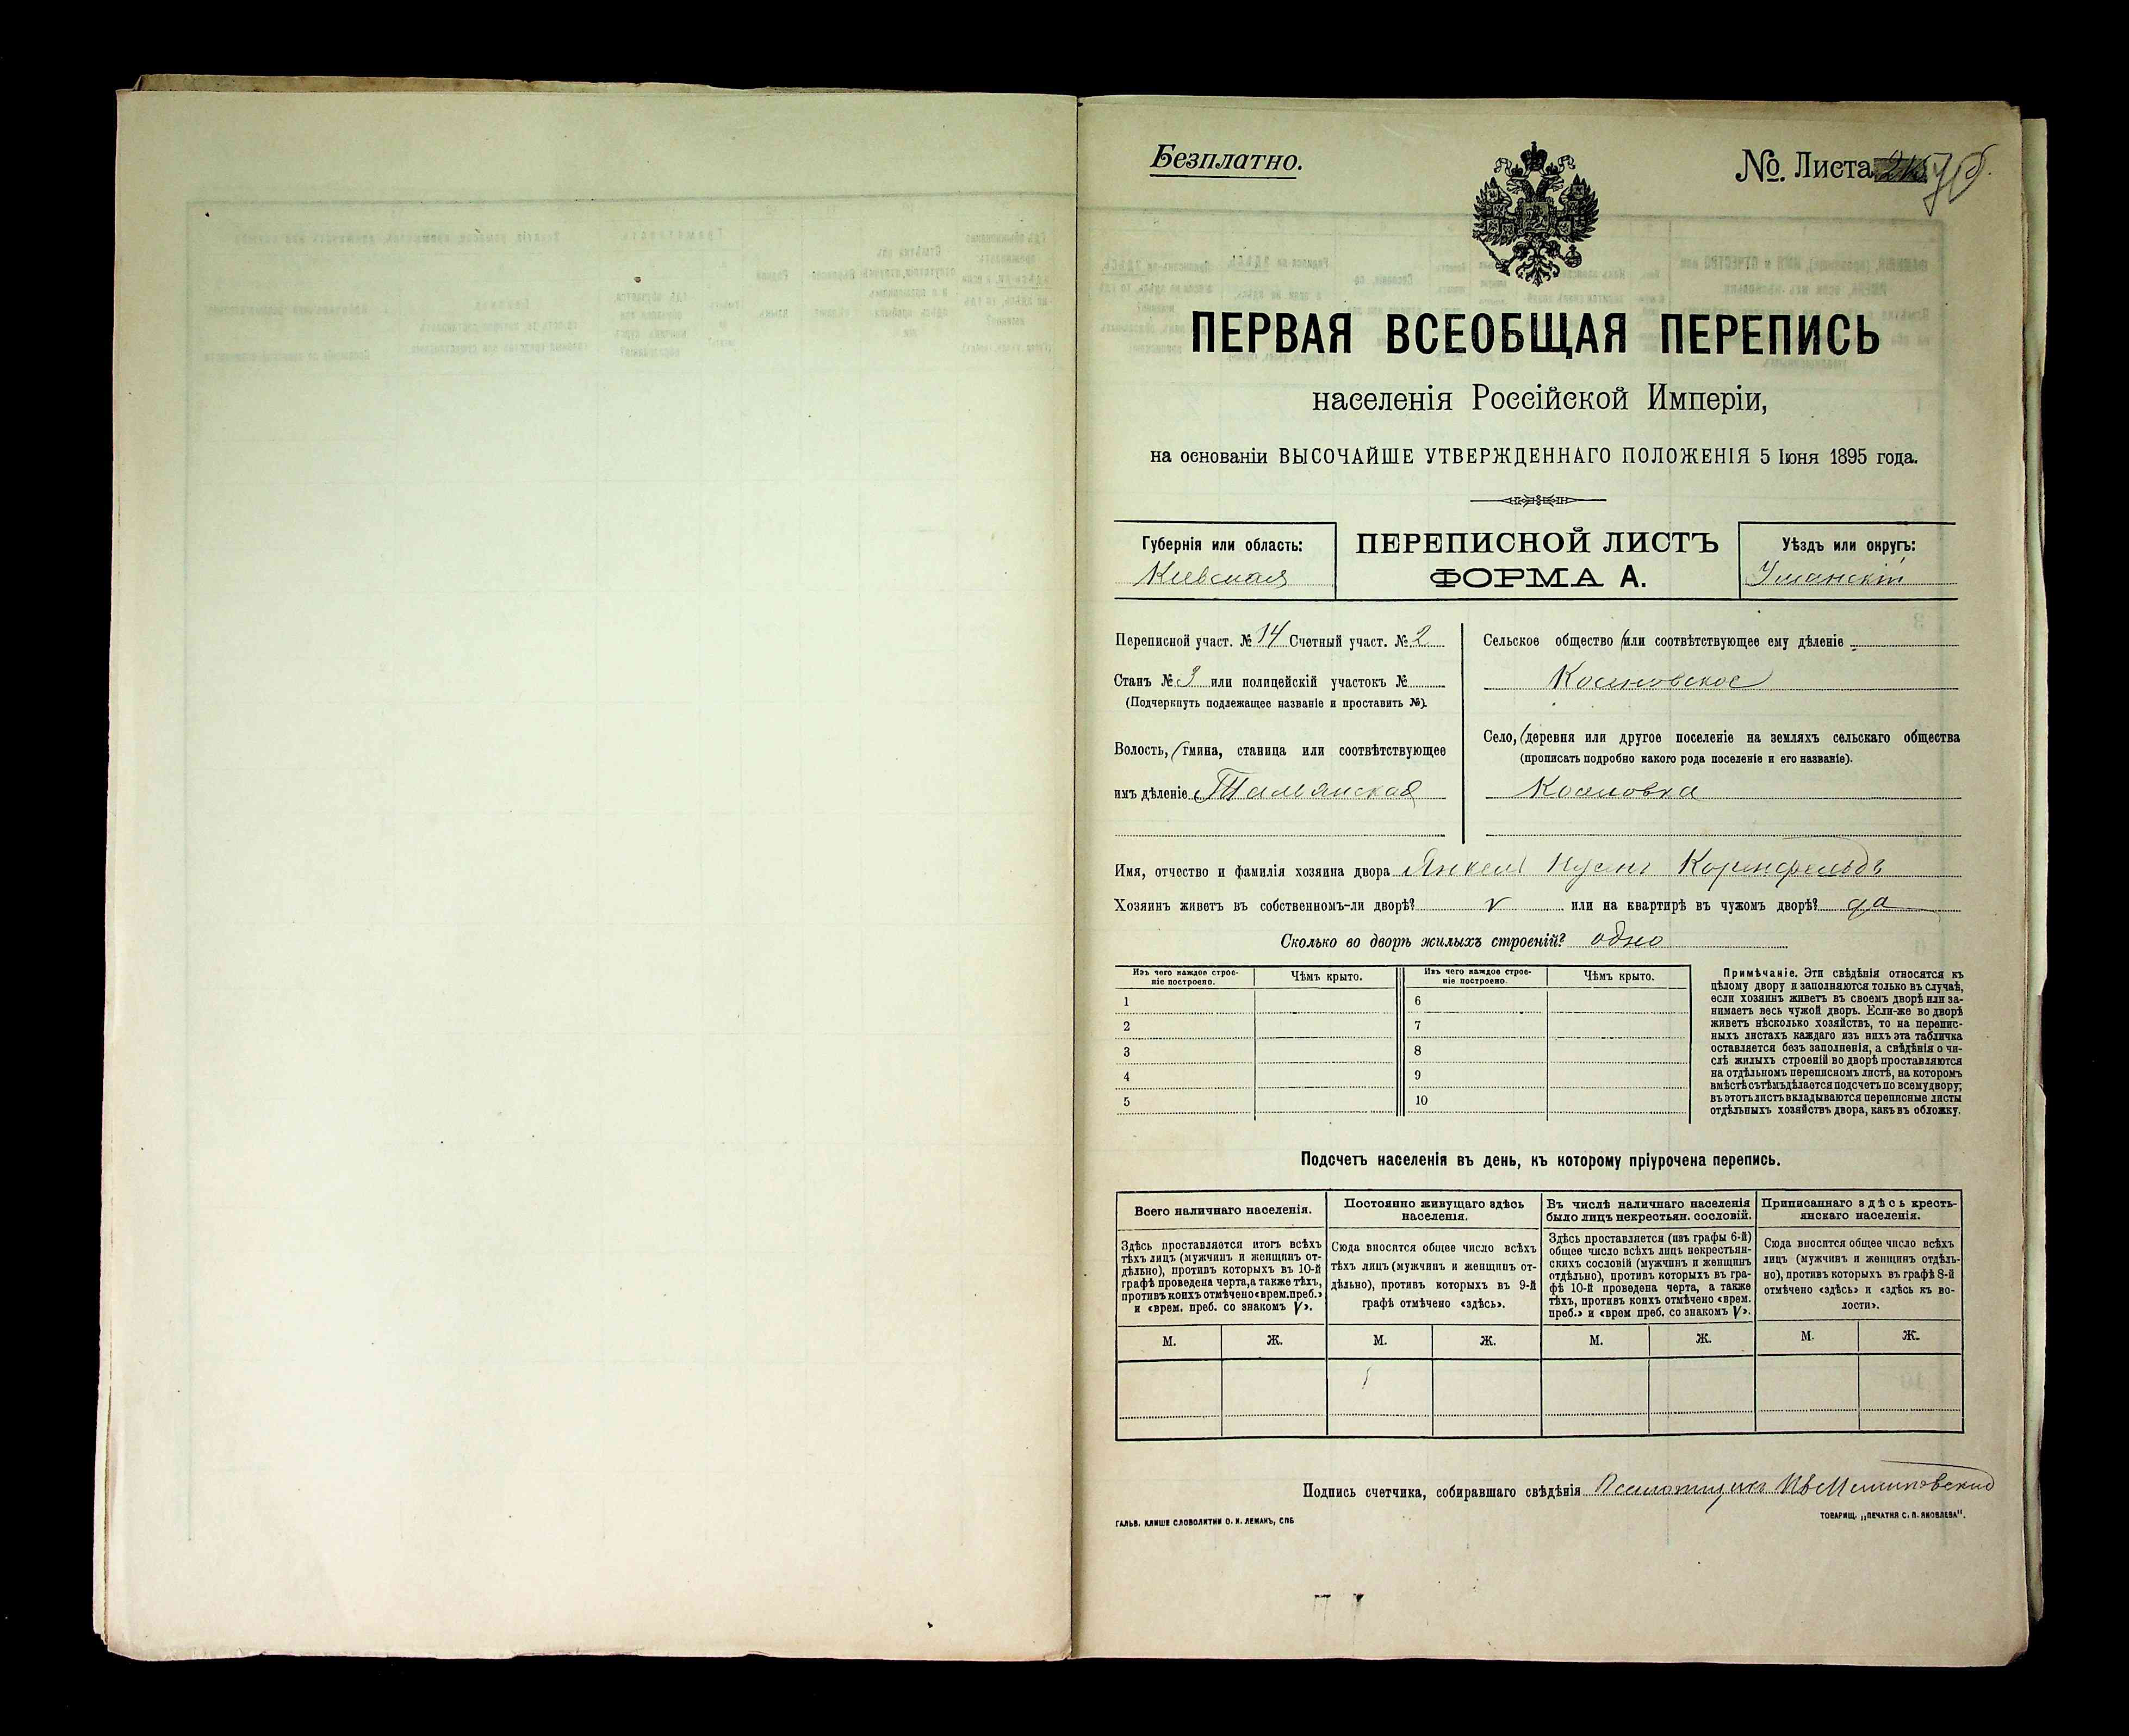 Безплатно.
№. Листа
ПЕРВАЯ ВСЕОБЩАЯ ПЕРЕПИСЬ
населенія Россійской Имперіи,
на основаніи ВЫСОЧАЙШЕ УТВЕРЖДЕННАГО ПОЛОЖЕНІЯ 5 Іюня 1895 года.
Губернія или область:
Кіевская
ПЕРЕПИСНОЙ ЛИСТЪ
ФОРМА А.
Уѣздъ или округъ:
Уманскій
Переписной участ. № 14 Счетный участ. № 2
Станъ № 3 или полицейскій участокъ №
(Подчеркнуть подлежащее названіе и проставить №).
Волость, (гмина, станица или соотвѣтствующее
имъ дѣленіе
Сельское общество (или соотвѣтствующее ему дѣленіе
Косеновское
Село, (деревня или другое поселеніе на земляхъ сельскаго общества
(прописать подробно какого рода поселеніе и его названіе).
Косеновка
Имя, отчество и фамилія хозяина двора Янкель Нусенъ Коренфельдъ
Хозяинъ живетъ въ собственномъ-ли дворѣ? v или на квартирѣ въ чужомъ дворѣ? да
Сколько во дворѣ жилыхъ строеній? одно
Изъ чего каждое строе-
ніе построено.
Чѣмъ крыто.
Изъ чего каждое строе-
ніе построено.
Чѣмъ крыто.
1 6
2 7
3 8
4 9
5 10
Примѣчаніе. Эти свѣдѣнія относятся къ
цѣлому двору и заполняются только въ случаѣ,
если хозяинъ живетъ въ своемъ дворѣ или за-
нимаетъ весь чужой дворъ. Если-же во дворѣ
живетъ нѣсколько хозяйствъ, то на перепис-
ныхъ листахъ каждаго изъ нихъ эта табличка
оставляется безъ заполненія, а свѣдѣнія о чи-
слѣ жилыхъ строеній во дворѣ проставляются
на отдѣльномъ переписномъ листѣ, на которомъ
вмѣстѣ съ тѣмъ дѣлается подсчетъ по всему двору;
въ этотъ листъ вкладываются переписные листы
отдѣльныхъ хозяйствъ двора, какъ въ обложку.
Подсчетъ населенія въ день, къ которому пріурочена перепись.
Всего наличнаго населенія.
Здѣсь проставляется итогъ всѣхъ
тѣхъ лицъ (мужчинъ и женщинъ от-
дѣльно), противъ которыхъ въ 10-й
графѣ проведена черта, а также тѣхъ,
противъ коихъ отмѣчено «врем. преб.»
и «врем. преб. со знакомъ V».
Постоянно живущаго здѣсь
населенія.
Сюда вносится общее число всѣхъ
тѣхъ лицъ (мужчинъ и женщинъ от-
дѣльно), противъ которыхъ въ 9-й
графѣ отмѣчено «здѣсь».
Въ числѣ наличнаго населенія
было лицъ некрестьян. сословій.
Здѣсь проставляется (изъ графы 6-й)
общее число всѣхъ лицъ некрестьян-
скихъ сословій (мужчинъ и женщинъ
отдѣльно), противъ которыхъ въ гра-
фѣ 10-й проведена черта, а также
тѣхъ, противъ коихъ отмѣчено «врем.
преб.» и «врем преб. со знакомъ V».
Приписаннаго здѣсь кресть-
янскаго населенія.
Сюда вносится общее число всѣхъ
лицъ (мужчинъ и женщинъ отдѣль-
но), противъ которыхъ въ графѣ 8-й
отмѣчено «здѣсь» и «здѣсь къ во-
лости».
М. Ж. М. Ж. М. Ж. М. Ж.
Подпись счетчика, собиравшаго свѣдѣнія
ГАЛЬВ. КЛИШЕ СЛОВОЛИТНИ О. И. ЛЕМАНЪ, СПБ
ТОВАРИЩ. „ПЕЧАТНЯ С. П. ЯКОВЛЕВА".